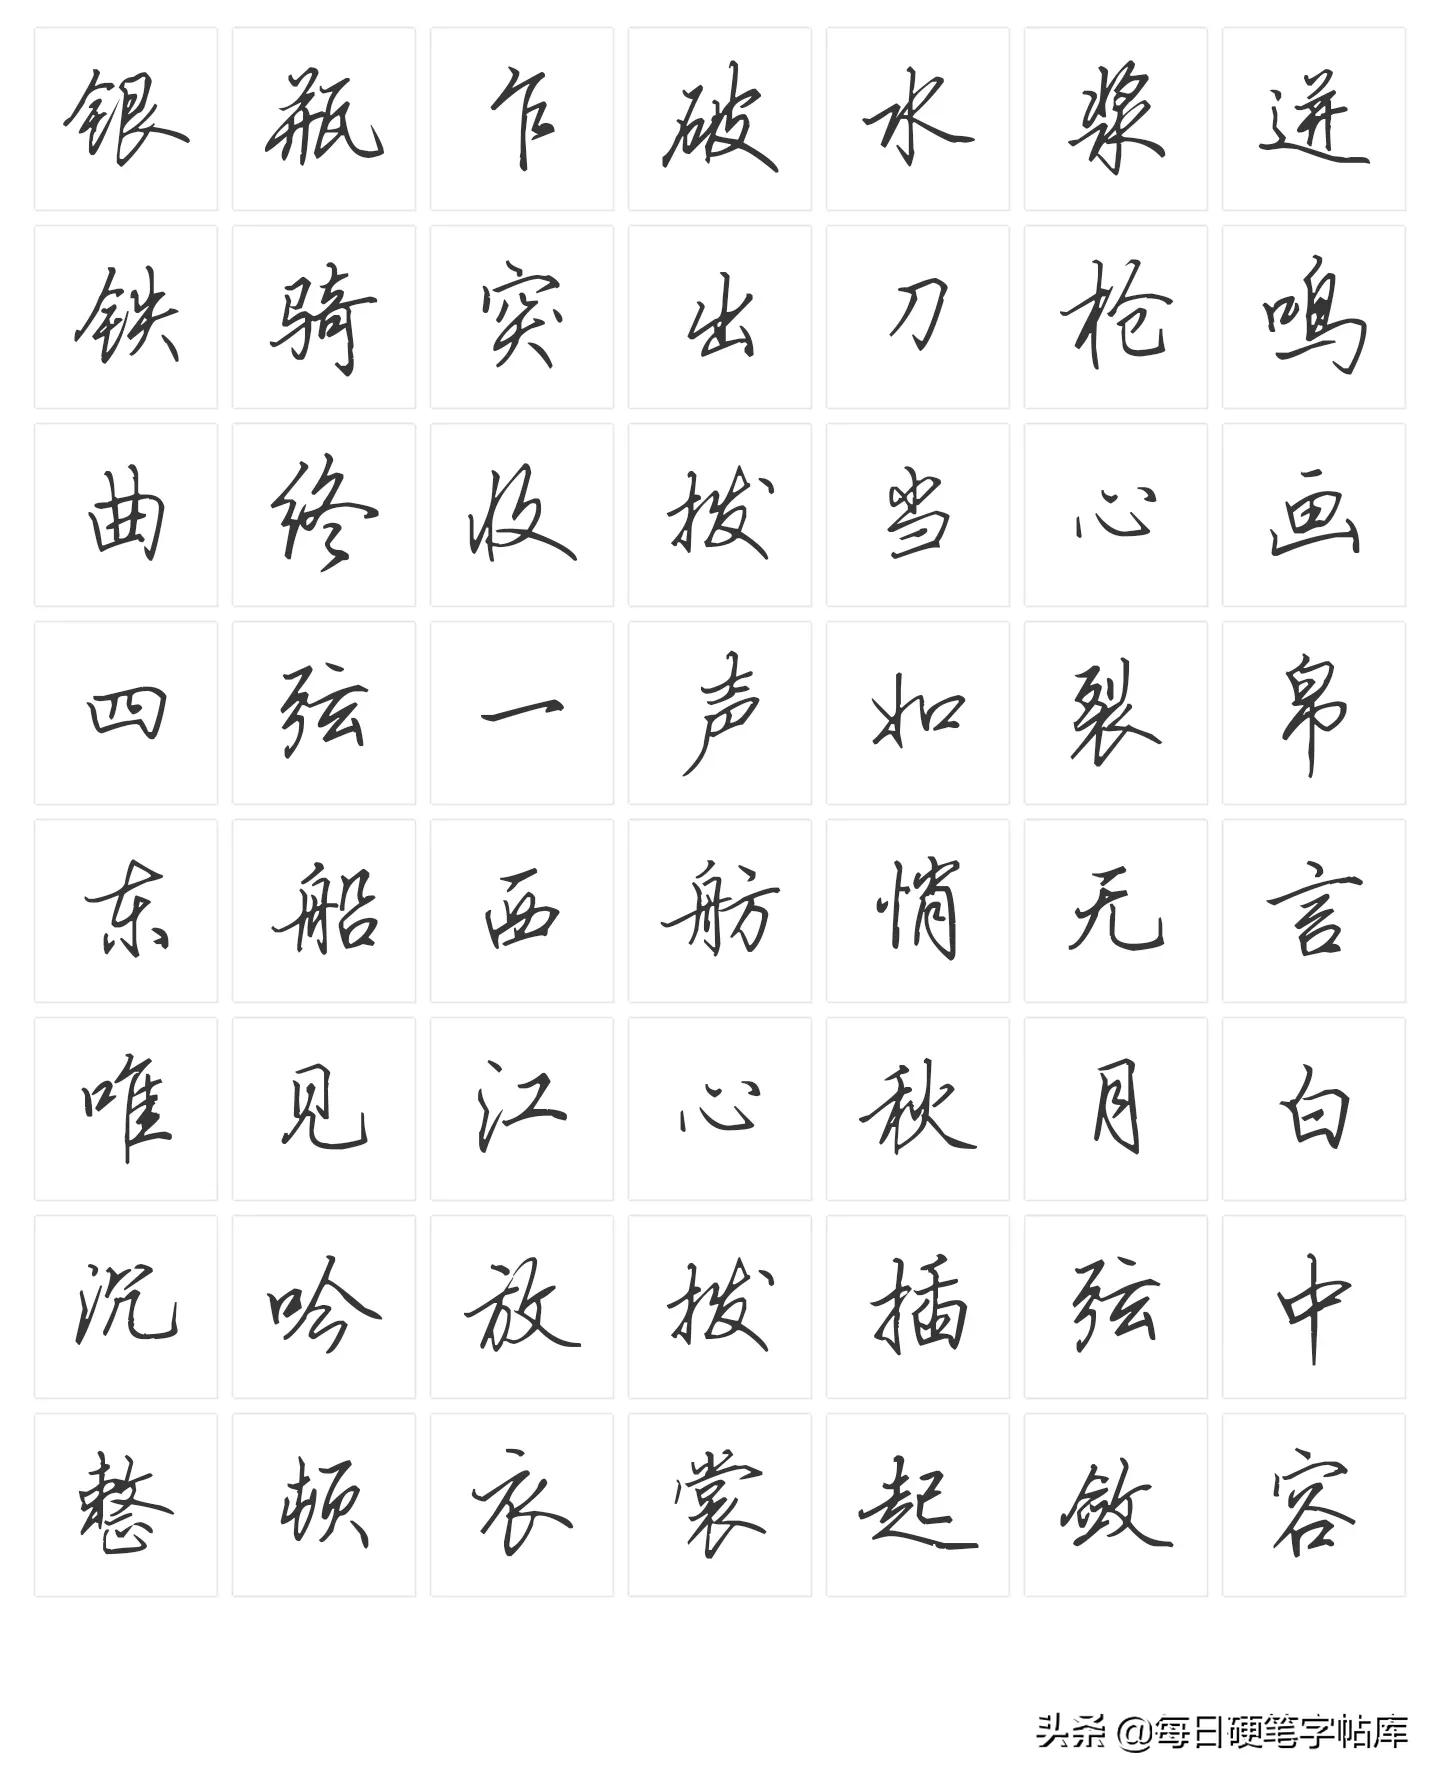 银瓶乍破水浆迸
铁骑突出刀枪鸣
曲终收拨当心画
四弦一声如裂帛
东船西舫悄无言
唯见江心秋月白
沉吟放拨插弦中
整顿衣裳起敛容
头条 @每日硬笔字帖库